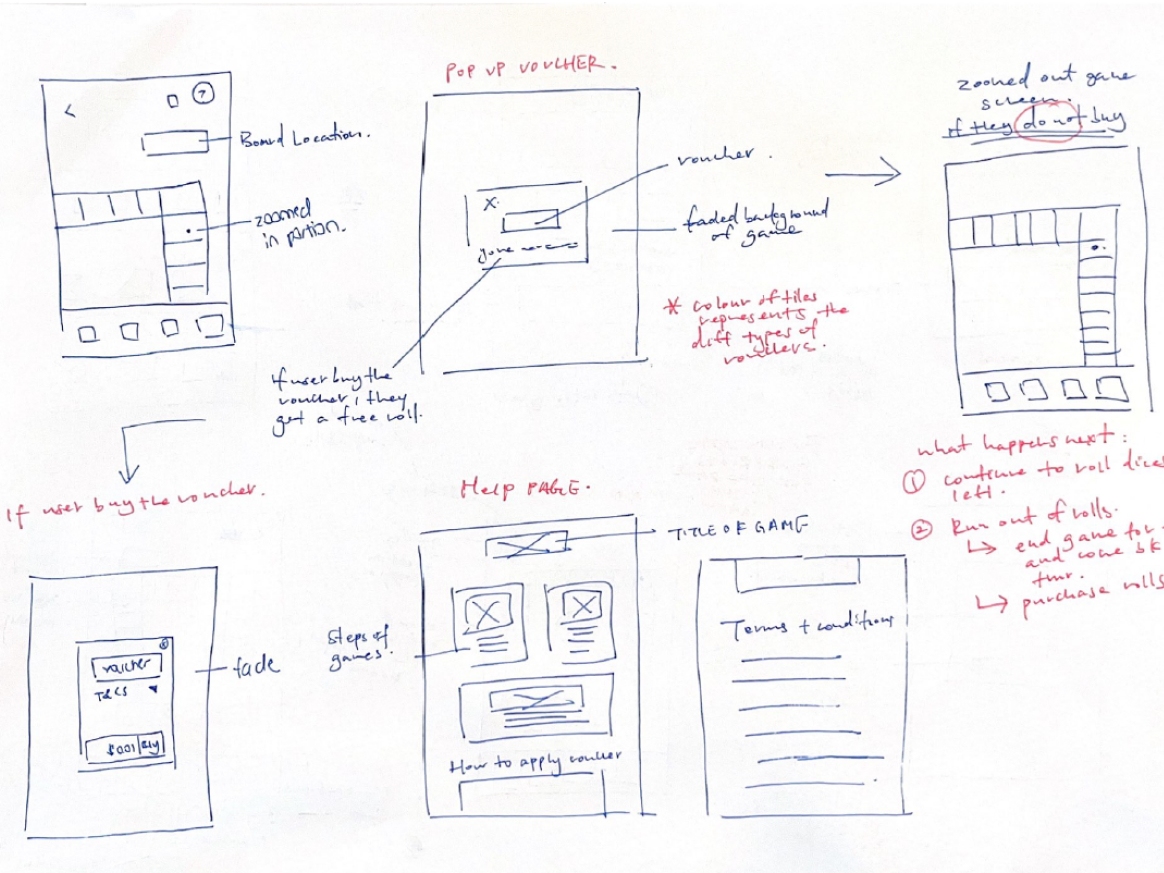 ?
Board Location.
zoomed
in portion.
POP UP VOUCHER.
X
voucher.
faded background
of game
If user buy the
voucher, they
get a free roll.
* colour of tiles
represents the
diff types of
vouchers.
zoomed out game
screen.
If they do not buy
what happens next:
① continue to roll dice
left.
② Run out of rolls.
↳ end game for
and come bk
tmr.
↳ purchase rolls
If user buy the voucher.
voucher
T&CS
$0.01 Buy
fade
Help PAGE.
TITLE OF GAME
Steps of
games.
How to apply voucher
Terms + conditions